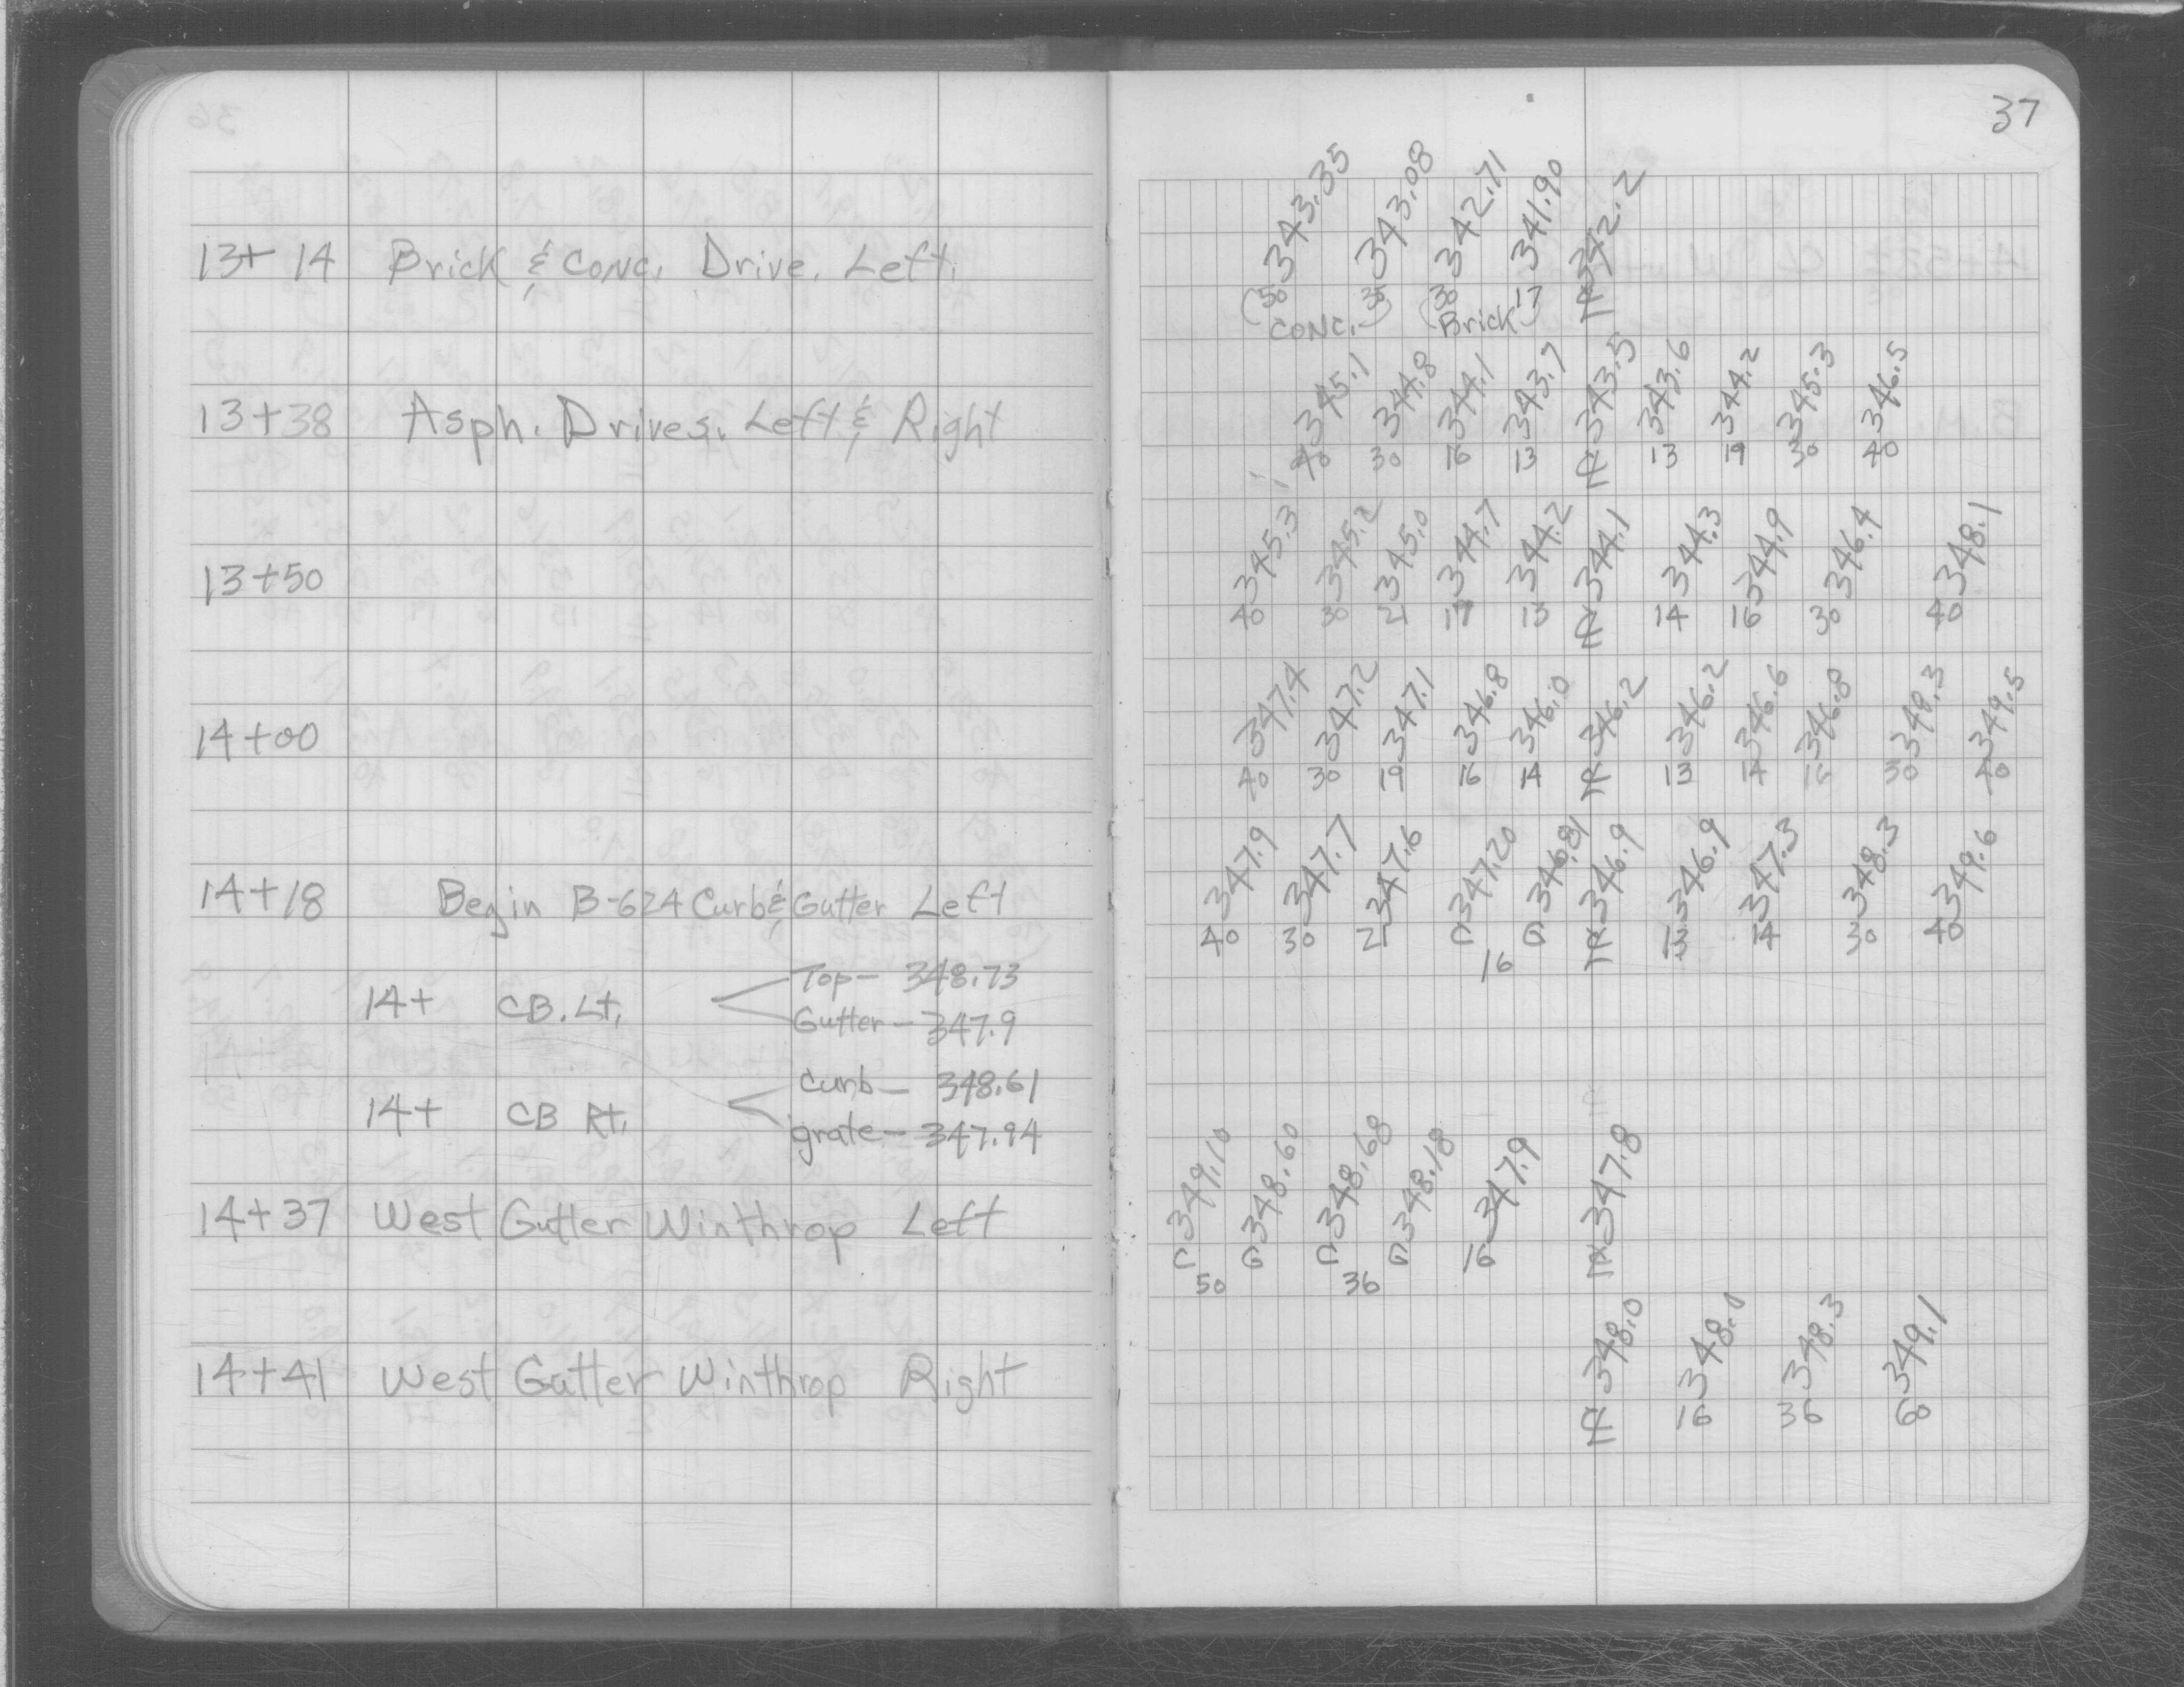 37
13+14 Brick & Conc. Drive. Left.
343.35 343.08 342.71 341.90 ℄ 342.2
(50 35) (30 17)
CONC. Brick
13+38 Asph. Drives. Left & Right
345.1 344.8 344.1 343.7 ℄ 343.5 343.6 344.2 345.3 346.5
40 30 16 13 13 19 30 40
13+50
345.3 345.2 345.0 344.7 344.2 ℄ 344.1 344.3 344.9 346.4 348.1
40 30 21 17 13 14 16 30 40
14+00
347.4 347.2 347.1 346.8 346.0 ℄ 346.2 346.2 346.6 346.8 348.3 349.5
40 30 19 16 14 13 14 16 30 40
14+18 Begin B-624 Curb & Gutter Left
347.9 347.7 347.6 347.20 346.81 ℄ 346.9 346.9 347.3 348.3 349.6
40 30 21 C G 13 14 30 40
16
14+ CB. Lt. Top - 348.73
Gutter - 347.9
14+ CB Rt. Curb - 348.61
grate - 347.94
14+37 West Gutter Winthrop Left
349.10 348.60 348.68 348.18 347.9 ℄ 347.8
C G C G 16
50 36
14+41 West Gutter Winthrop Right
℄ 348.0 348.0 348.3 349.1
16 36 60